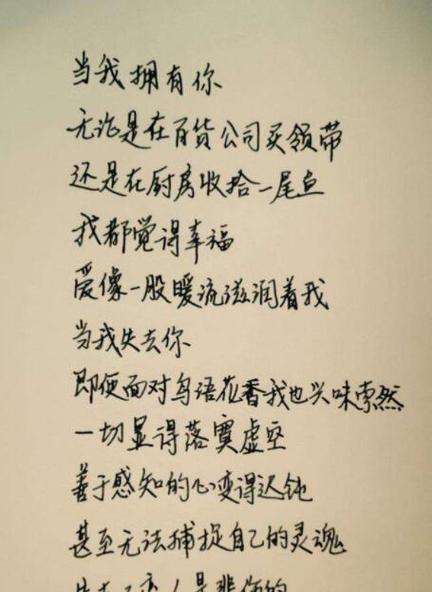 当我拥有你
无论是在百货公司买领带
还是在厨房收拾一尾鱼
我都觉得幸福
爱像一股暖流滋润着我
当我失去你
即便面对鸟语花香我也兴味索然
一切显得落寞虚空
善于感知的心变得迟钝
甚至无法捕捉自己的灵魂